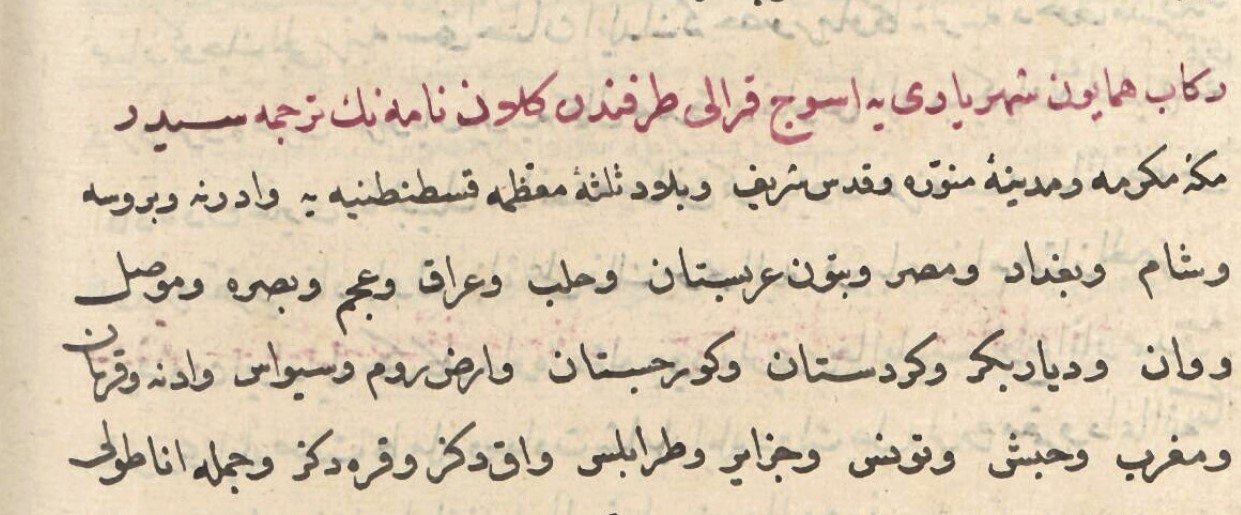 ركاب همايون شهرياری يه اسوج قرالی طرفندن كلان نامه نك ترجمه سيدر
مكهٔ مكرمه ومدينهٔ منوّره وقدس شريف وبلاد ثلثهٔ معظمه قسطنطنيه يه وادرنه وبروسه
وشام وبغداد ومصر وبتون عربستان وحلب وعراق وعجم وبصره وموصل
ووان وديار بكر وكردستان وكورجستان وارض روم وسيواس وادنه وقرمان
ومغرب وحبش وتونس وجزاير وطرابلس واق دكز وقره دكز وجمله اناطولی